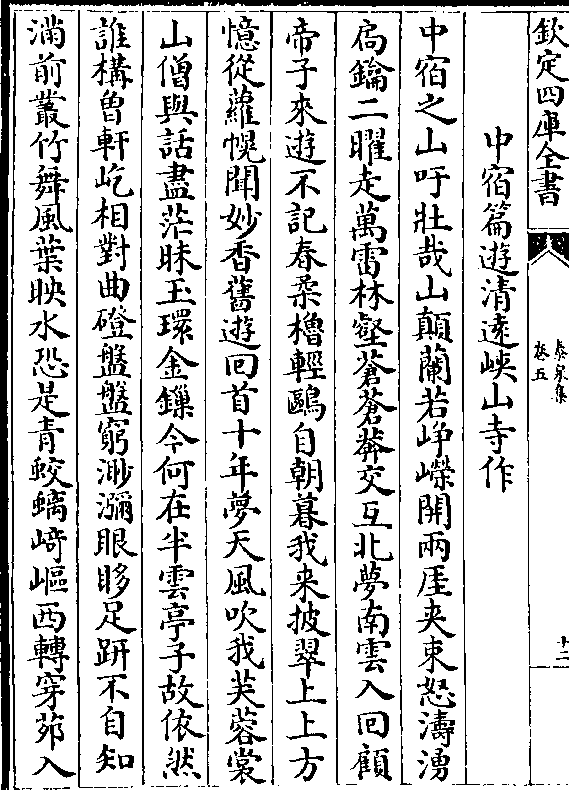 欽定四庫全書
泰泉集
卷五
十二
中宿篇遊清遠峽山寺作
中宿之山吁壯哉山顛蘭若崢嶸開兩厓夾束怒濤湧
扃鑰二曜走萬雷林壑蒼蒼莾交互北夢南雲入回顧
帝子來遊不記春桑櫓輕鷗自朝暮我来披翠上上方
憶從蘿幌聞妙香舊遊回首十年夢天風吹我芙蓉裳
山僧與話盡茫昧玉環金鏁今何在半雲亭子故依然
誰構曾軒屹相對曲磴盤盤窮渺瀰眼眵足趼不自知
滿前叢竹舞風葉映水恐是青蛟螭﨑嶇西轉穿茆入